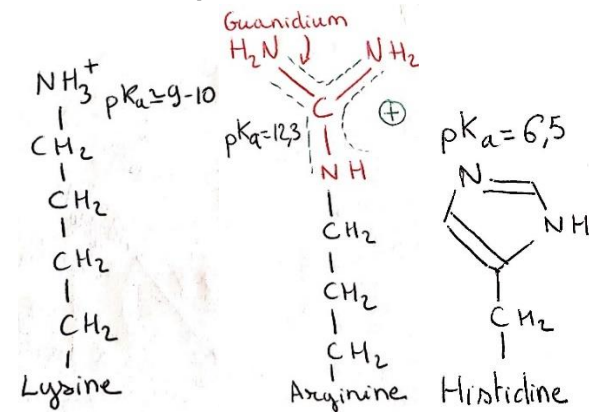 NH₃⁺
pKa≃9-10
CH₂
CH₂
CH₂
CH₂
Lysine
Guanidium
H₂N
NH₂
C
⊕
pKa=12,3
NH
CH₂
CH₂
CH₂
Arginine
pKa=6,5
N
NH
CH₂
Histidine